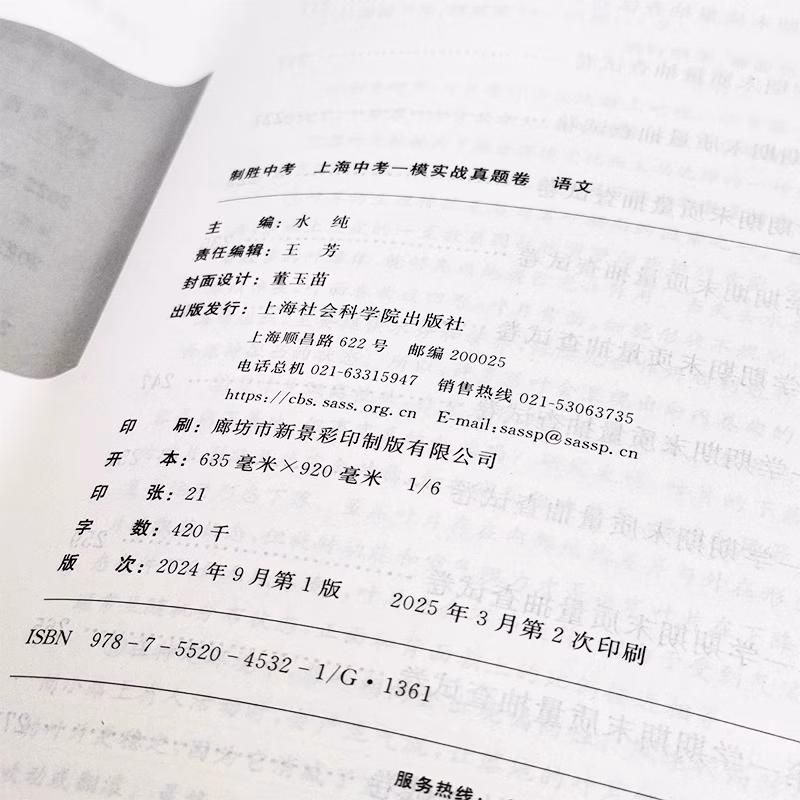 制胜中考 上海中考一模实战真题卷 语文
主 编：水 纯
责任编辑：王 芳
封面设计：董玉苗
出版发行：上海社会科学院出版社
上海顺昌路 622 号 邮编 200025
电话总机 021-63315947 销售热线 021-53063735
https://cbs.sass.org.cn E-mail:sassp@sassp.cn
印 刷：廊坊市新景彩印制版有限公司
开 本：635 毫米×920 毫米 1/6
印 张：21
字 数：420 千
版 次：2024 年 9 月第 1 版 2025 年 3 月第 2 次印刷
ISBN 978-7-5520-4532-1/G·1361
服务热线：